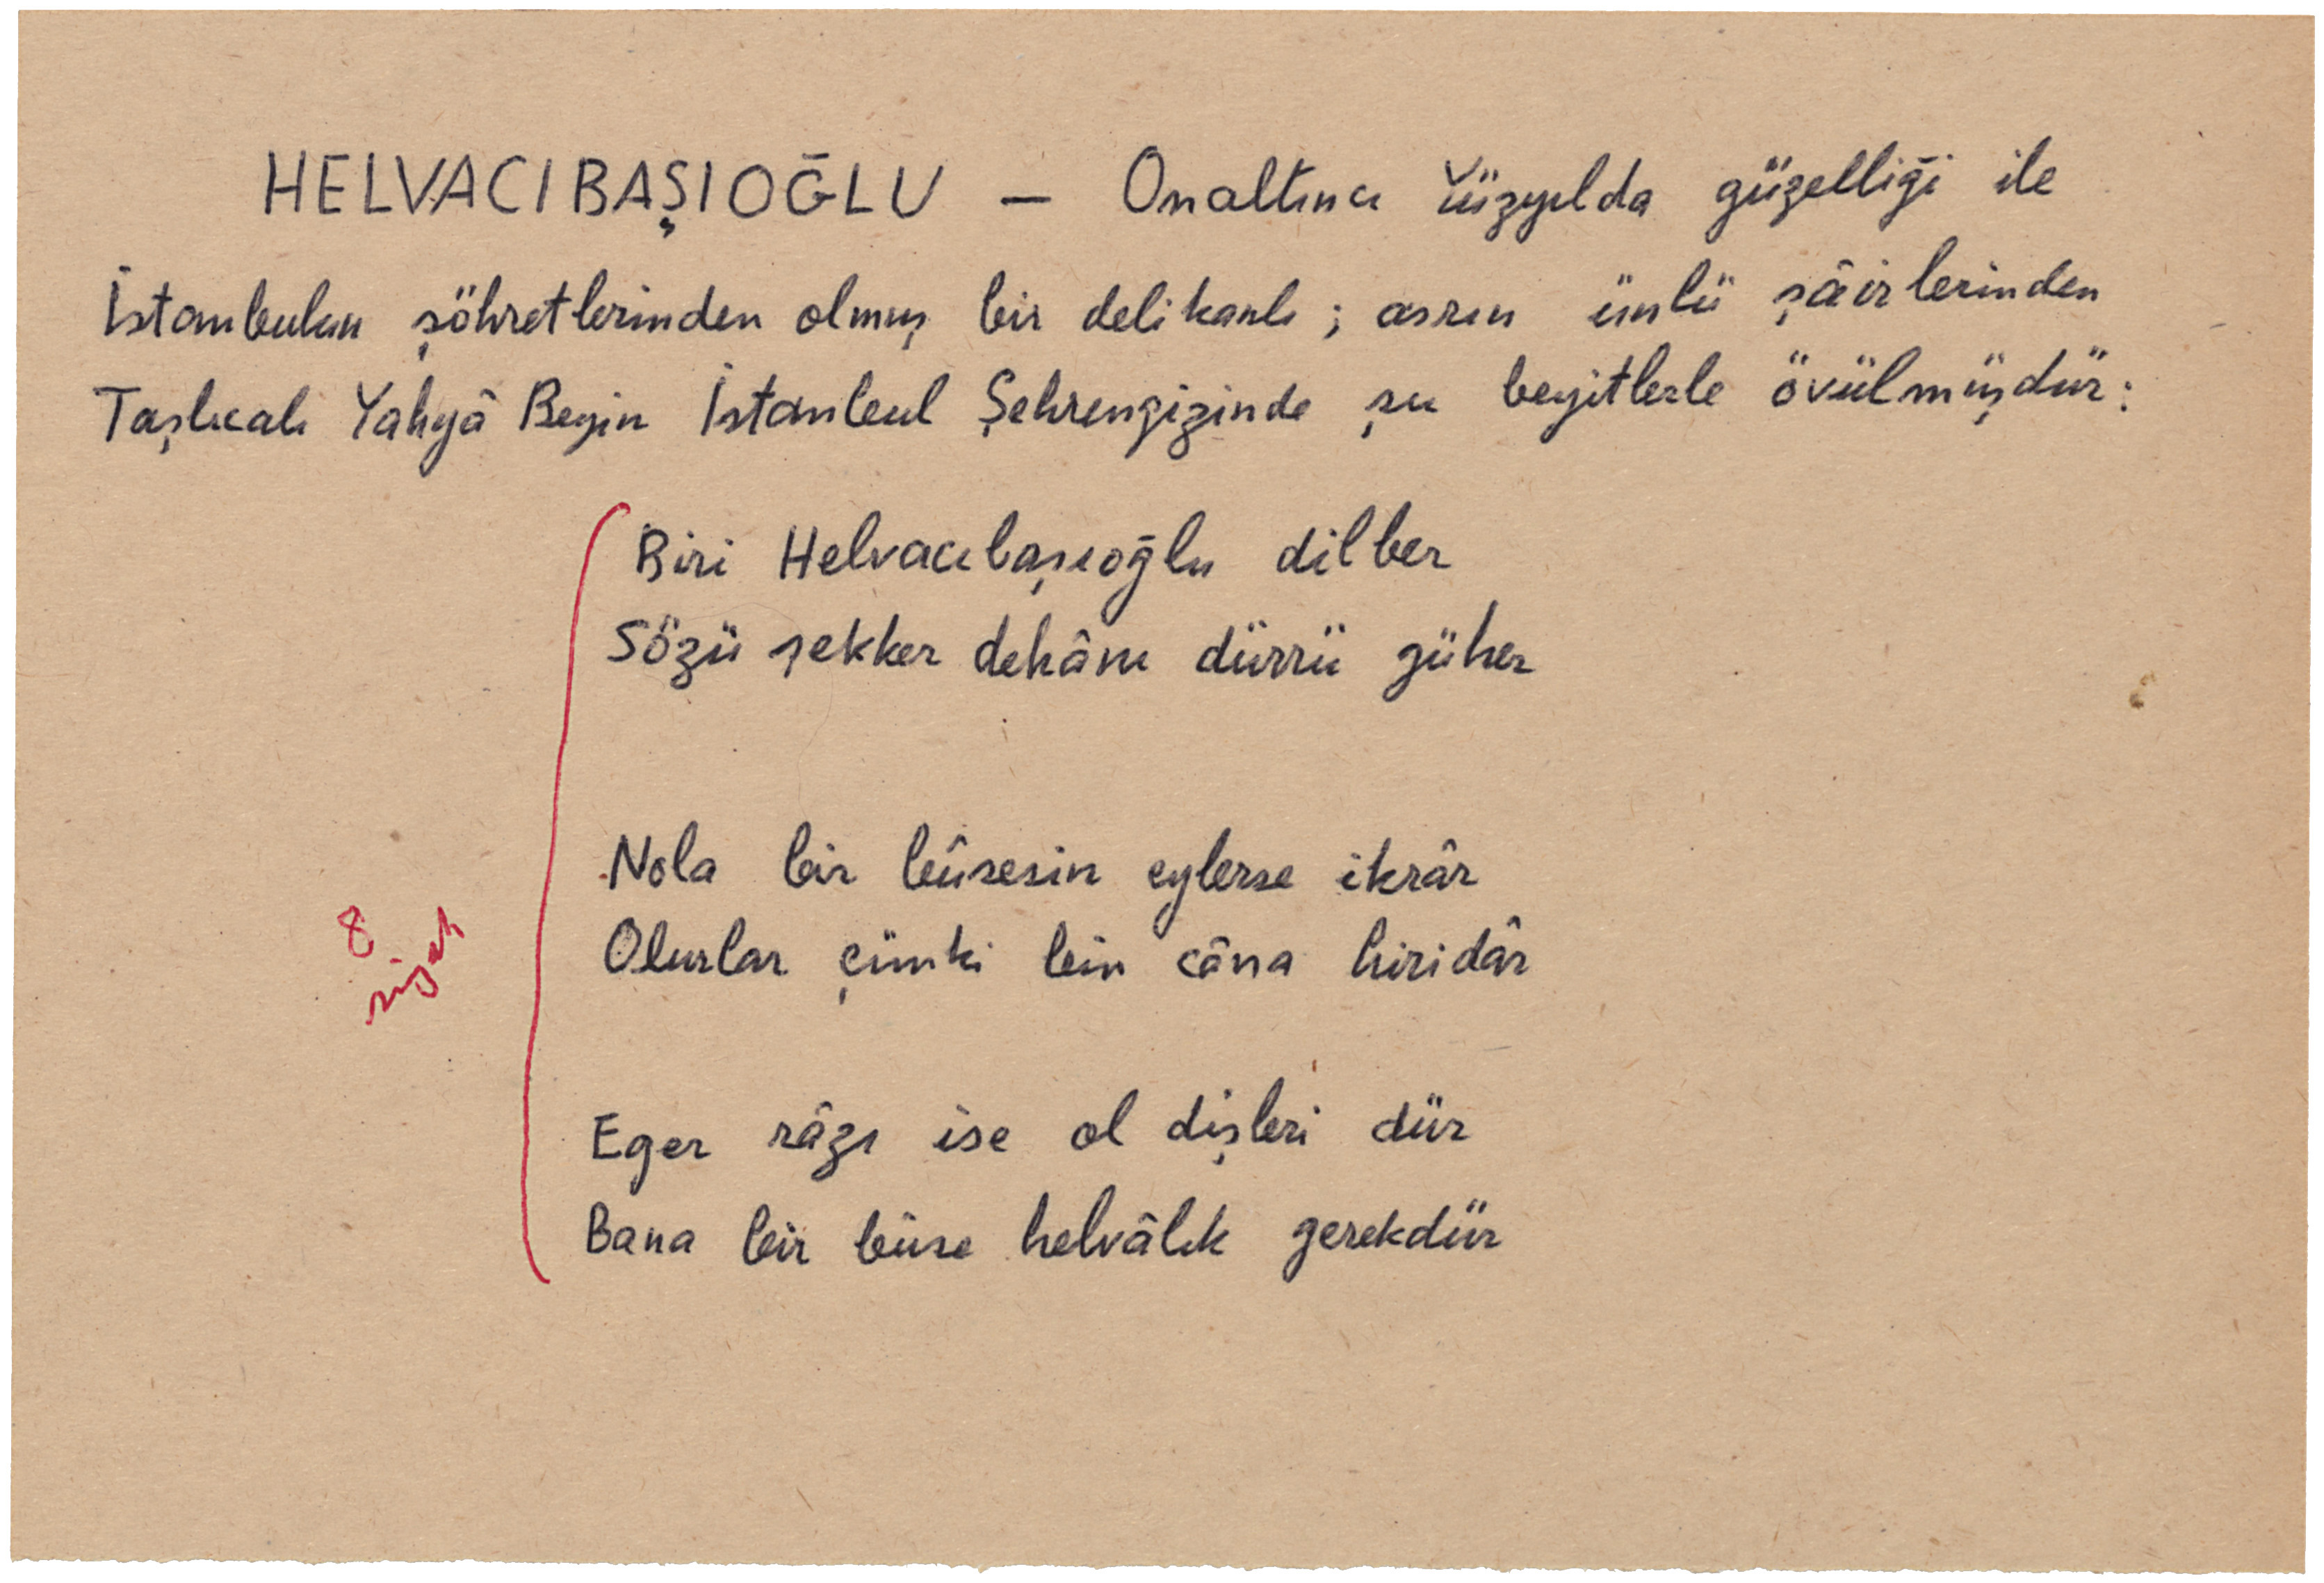 HELVACIBAŞIOĞLU — Onaltıncı Yüzyılda güzelliği ile
İstanbulun şöhretlerinden olmuş bir delikanlı; asrın ünlü şâirlerinden
Taşlıcalı Yahyâ Beyin İstanbul Şehrengizinde şu beyitlerle övülmüşdür:
Biri Helvacıbaşıoğlu dilber
Sözü şekker dehânı dürrü güher
Nola bir bûsesin eylerse ikrâr
Olurlar çünki bin câna hiridâr
8
siyah
Eger râzı ise ol dişleri dür
Bana bir bûse helvâlık gerekdür